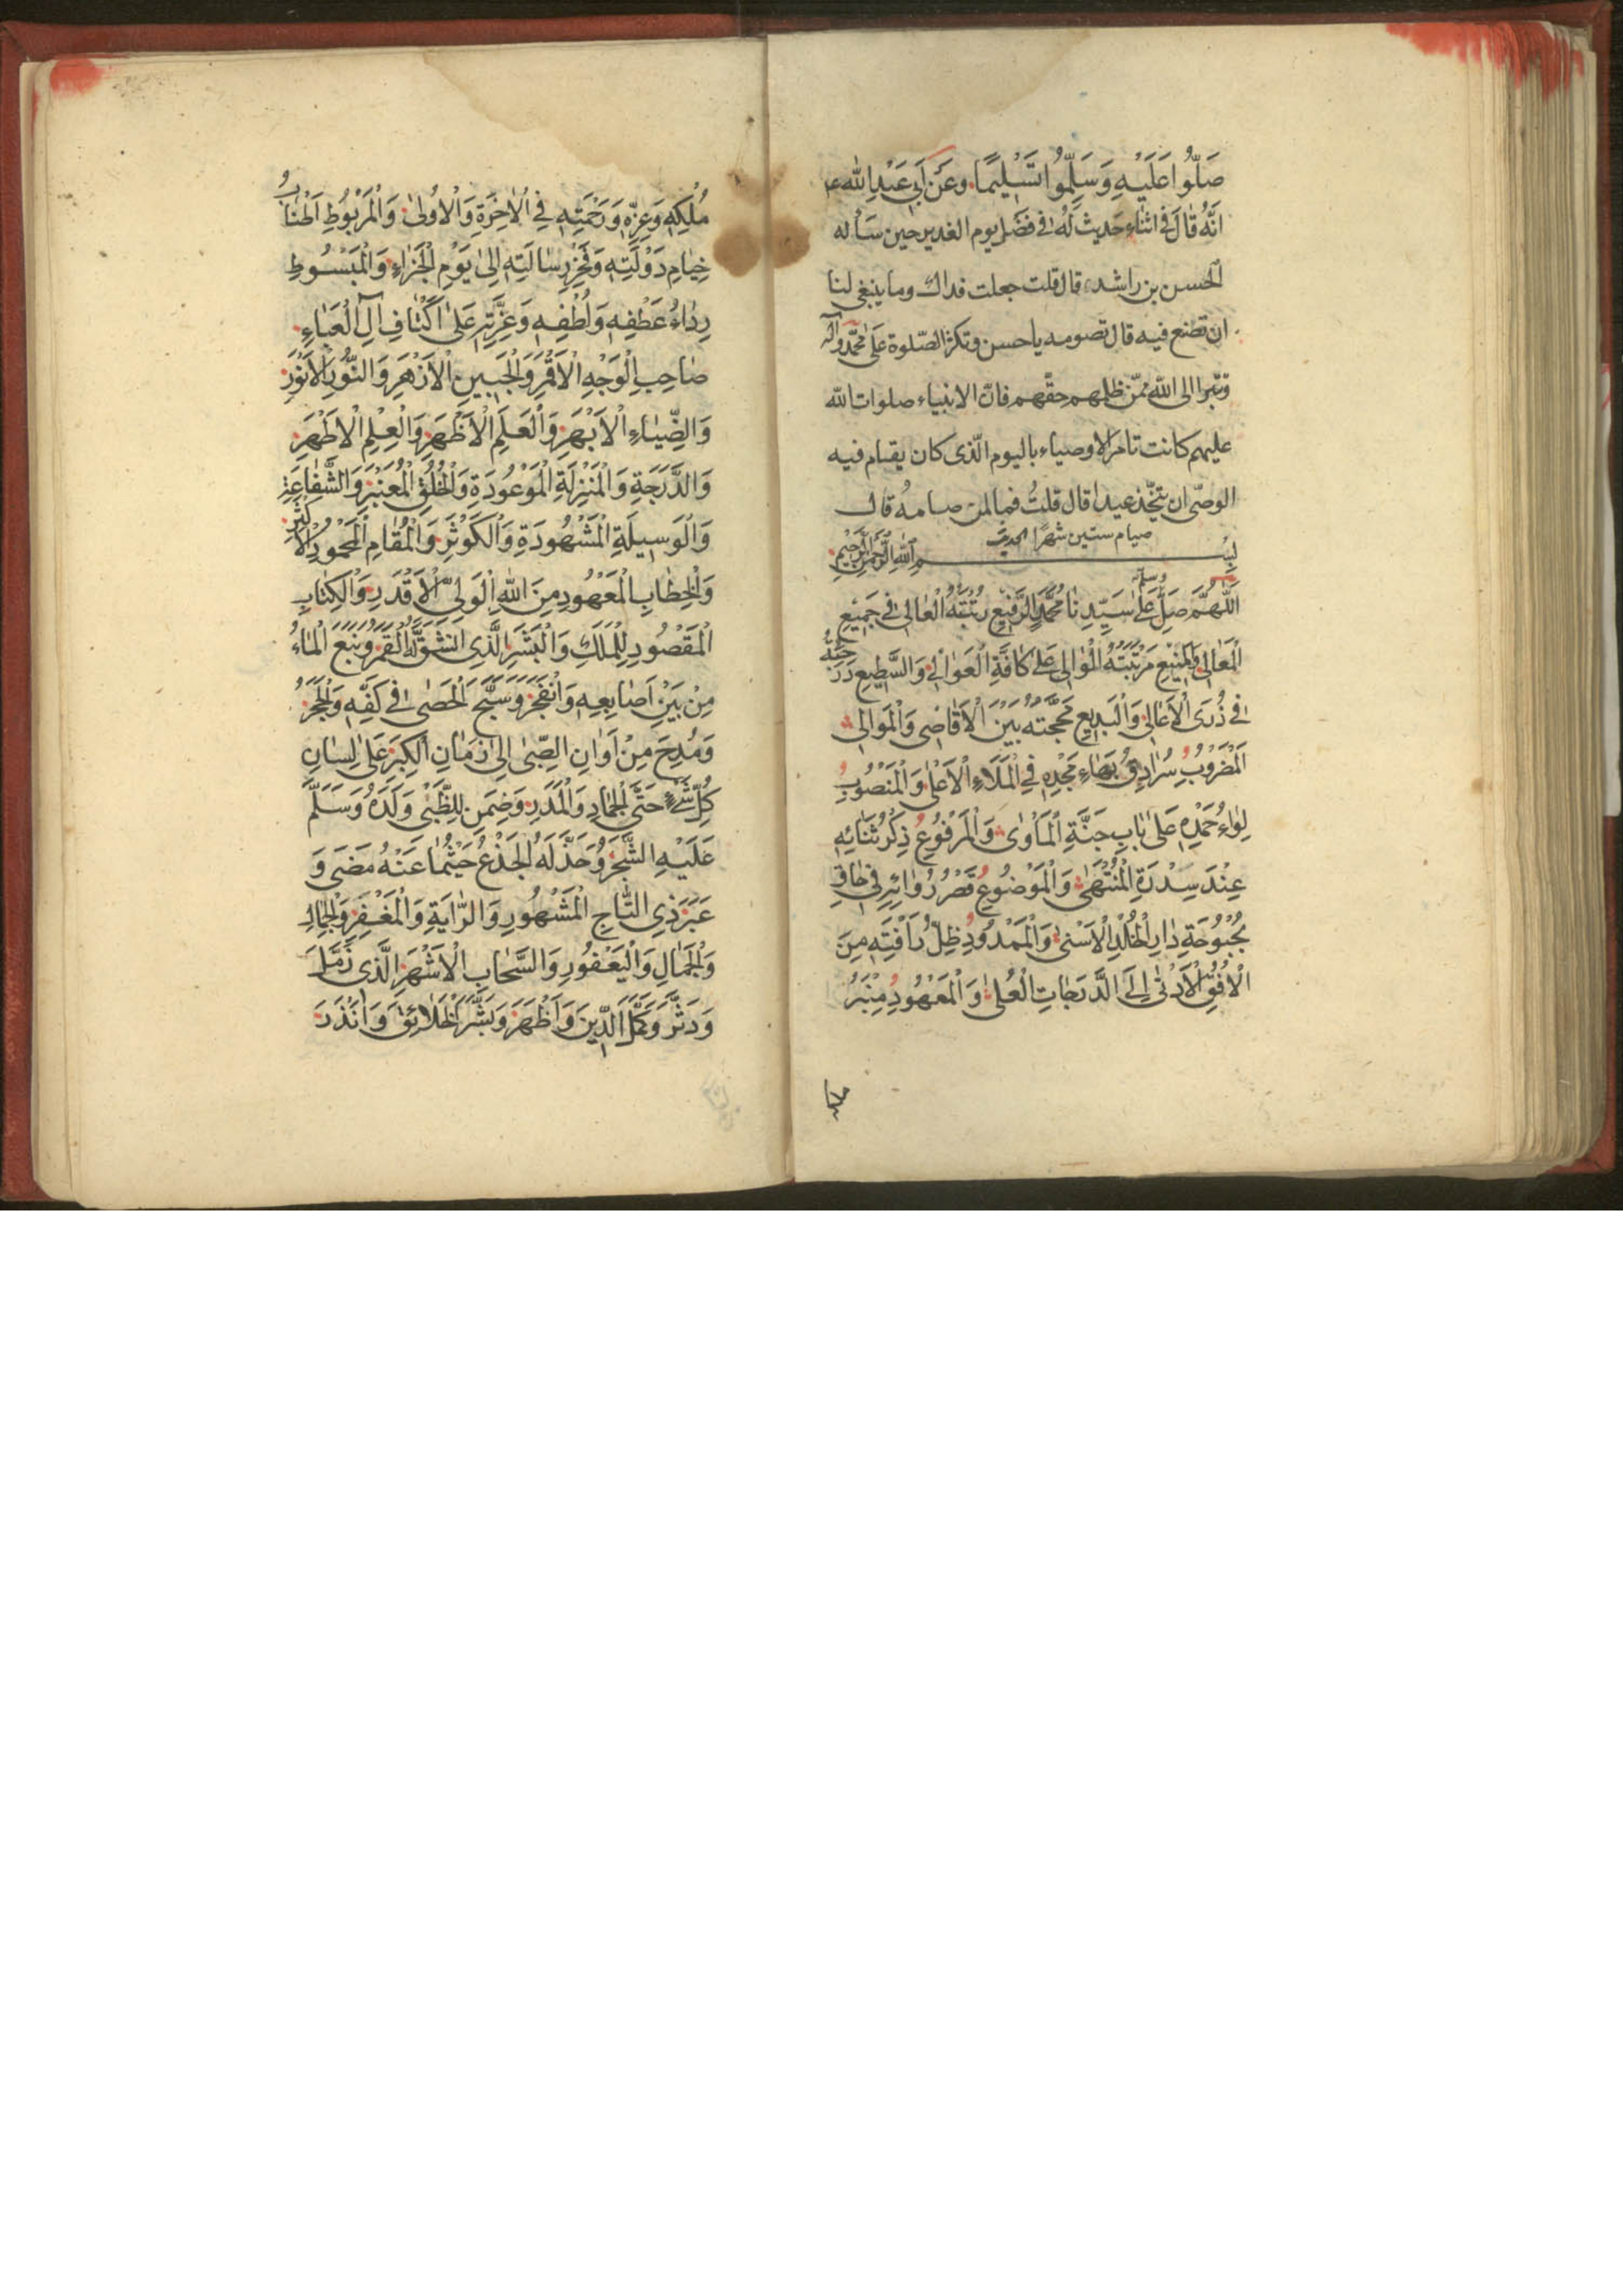 صَلُّوا عَلَيْهِ وَسَلِّمُوا تَسْلِيمًا وعَنْ أَبِي عَبْدِ اللّٰه ع
اَنَّهُ قَالَ فِي اثْنَاءِ حَدِيث لَهُ فِي فَضْلِ يوم الغدير حين سَأله
الحسن بن راشد قال قلت جعلت فداك وما ينبغى لنا
ان نصنع فيه قال تصومه ياحسن وتكثر الصّلوة عَلى محمّد وآله
وتتبرا الى الله ممّن ظلمهم حقّهم فانّ الانبياء صلوات الله
عليهم كانت تامر الاوصياء باليوم الّذى كان يقام فيه
الوصىّ ان يتّخذ عيدا قال قلتُ فما لمن صامهُ قال
صيام ستين شهرًا الحديث
بِسْمِ اللّٰهِ الرَّحْمٰنِ الرَّحِيمِ
اَللّٰهُمَّ صَلِّ وسلّم عَلىٰ سَيِّدِنَا مُحَمَّدٍ الرَّفِيْعِ رُتْبَتُهُ الْعَالِي فِي جَمِيْعِ
الْمَعَالِى وَالْمَنِيْعِ مَرْتَبَتُهُ الْمُوَالِى عَلىٰ كَافَّةِ الْعَوَالِي وَالسَّطِيعِ دَرَجَتُهُ
فِي ذُرَى الْاَعَالِي وَالْبَدِيعِ مَحَجَّتُهُ بَيْنَ الْاَقَاضِى وَالْمَوَالِي
اَلْمَضْرُوْبِ سُرَادِقُ بَهَاءِ مَجْدِهِ فِي الْمَلَاءِ الْاَعْلىٰ وَالْمَنْصُوْبِ
لِوَاءُ حَمْدِهِ عَلىٰ بَابِ جَنَّةِ الْمَاْوىٰ وَالْمَرْفُوْعِ ذِكْرُ ثَنَائِهِ
عِنْدَ سِدْرَةِ الْمُنْتَهىٰ وَالْمَوْضُوْعِ قَصْرُ زُوَّارِهِ فِي
بُحْبُوْحَةِ دَارِ الْخُلْدِ الْاَسْنىٰ وَالْمَمْدُوْدِ ظِلُّ رَاْفَتِهِ مِنَ
الْاُفُقِ الْاَدْنىٰ اِلَى الدَّرَجَاتِ الْعُلىٰ وَالْمَعْهُوْدِ مِنْبَرُ
مُلْكِهِ وَعِزِّهِ وَرَحْمَتِهِ فِي الْاٰخِرَةِ وَالْاُوْلىٰ وَالْمَرْبُوْطِ اَطْنَابُ
خِيَامِ دَوْلَتِهِ وَفَخْرِ رِسَالَتِهِ اِلىٰ يَوْمِ الْجَزَاءِ وَالْمَبْسُوْطِ
رِدَاءُ عَطْفِهِ وَلُطْفِهِ وَعِزَّتِهِ عَلىٰ اَكْتَافِ اٰلِ الْعَبَاءِ
صَاحِبِ الْوَجْهِ الْاَقْمَرِ وَالْجَبِيْنِ الْاَزْهَرِ وَالنُّوْرِ الْاَنْوَرِ
وَالضِّيَاءِ الْاَبْهَرِ وَالْعَلَمِ الْاَظْهَرِ وَالْعِلْمِ الْاَطْهَرِ
وَالدَّرَجَةِ وَالْمَنْزِلَةِ الْمَوْعُوْدَةِ وَالْخُلْقِ الْمُعَنْبَرِ وَالشَّفَاعَةِ
وَالْوَسِيْلَةِ الْمَشْهُوْدَةِ وَالْكَوْثَرِ وَالْمَقَامِ الْمَحْمُوْدِ الْاَكْثَرِ
وَالْخِطَابِ الْمَعْهُوْدِ مِنَ اللّٰهِ الْوَلِيِّ الْاَقْدَرِ وَالْكِتَابِ
الْمَقْصُوْدِ لِلْمَلَكِ وَالْبَشَرِ الَّذِى انْشَقَّ لَهُ الْقَمَرُ وَنَبَعَ الْمَاءُ
مِنْ بَيْنِ اَصَابِعِهِ وَانْفَجَرَ وَسَبَّحَ الْحَصٰى فِي كَفِّهِ وَالْحَجَرُ
وَمُدِحَ مِنْ اَوَانِ الصِّبىٰ اِلىٰ زَمَانِ الْكِبَرِ عَلىٰ لِسَانِ
كُلِّ شَيْءٍ حَتَّى الْجَمَادِ وَالْمَدَرِ وَضَمِنَ لِلظَّبْىِ وَلَدَهُ وَسَلَّمَ
عَلَيْهِ الشَّجَرُ وَحَنَّ لَهُ الْجِذْعُ حَيْثُمَا عَنْهُ مَضَى وَ
عَبَرَ ذِى التَّاجِ الْمَشْهُوْرِ وَالرَّايَةِ وَالْمَغْفَرِ
وَالْجَمَالِ وَالْيَعْفُوْرِ وَالسَّحَابِ الْاَشْهَرِ الَّذِى زَمَّلَ
وَدَثَّرَ وَكَمَّلَ الدِّيْنَ وَاَظْهَرَ وَبَشَّرَ الْخَلَائِقَ وَاَنْذَرَ